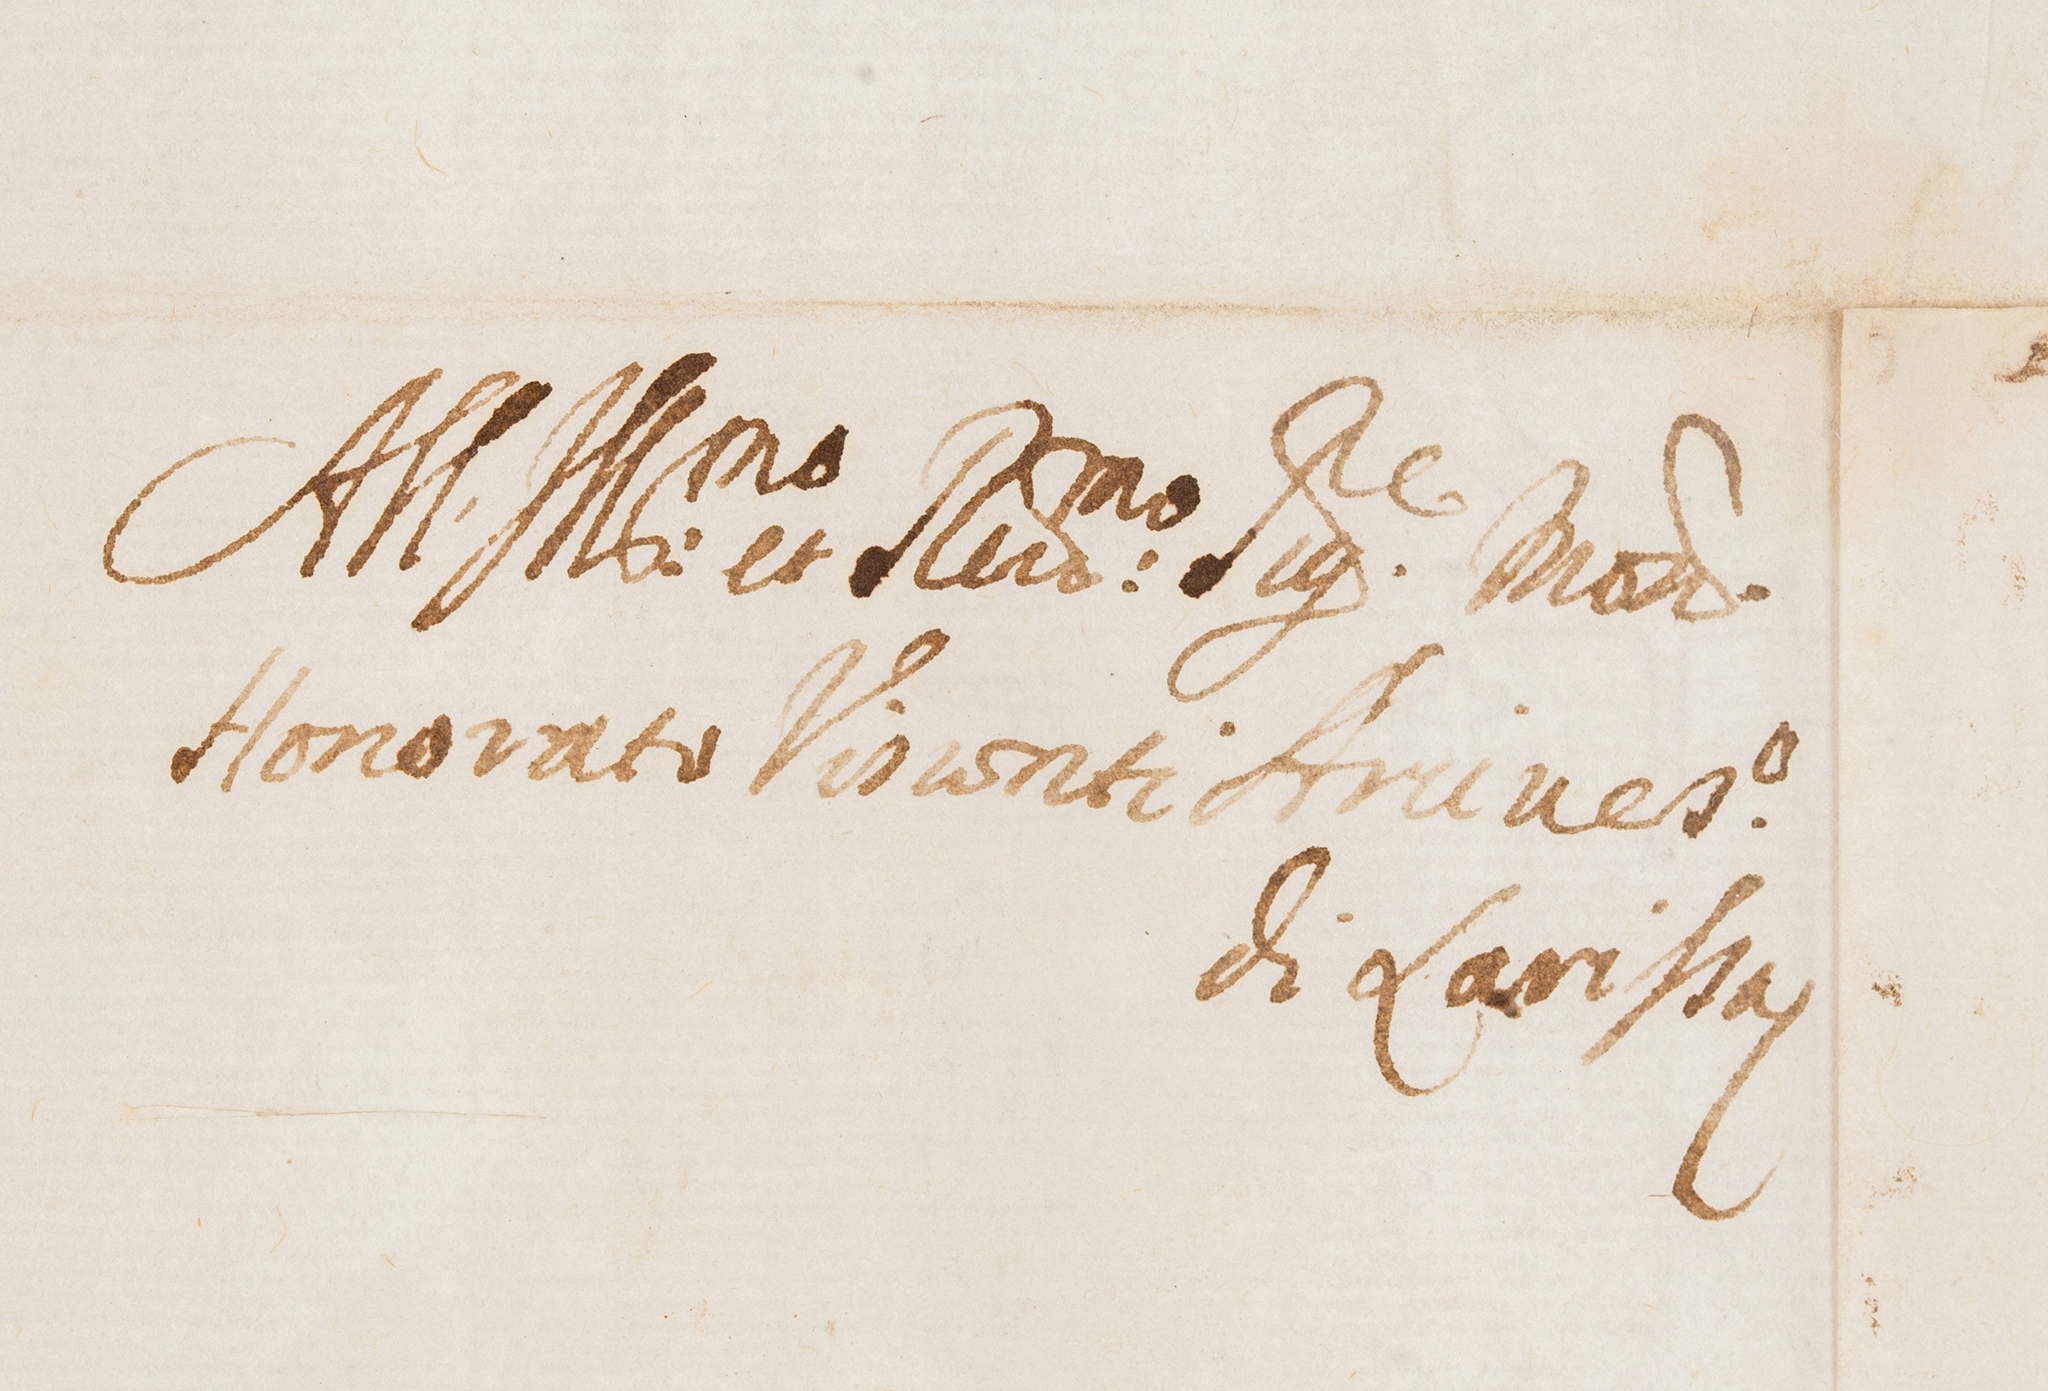 All' Ill.mo: et Reud.mo: Sig.re Mons.
Honorato Visconti Arciues.o
di Larissa